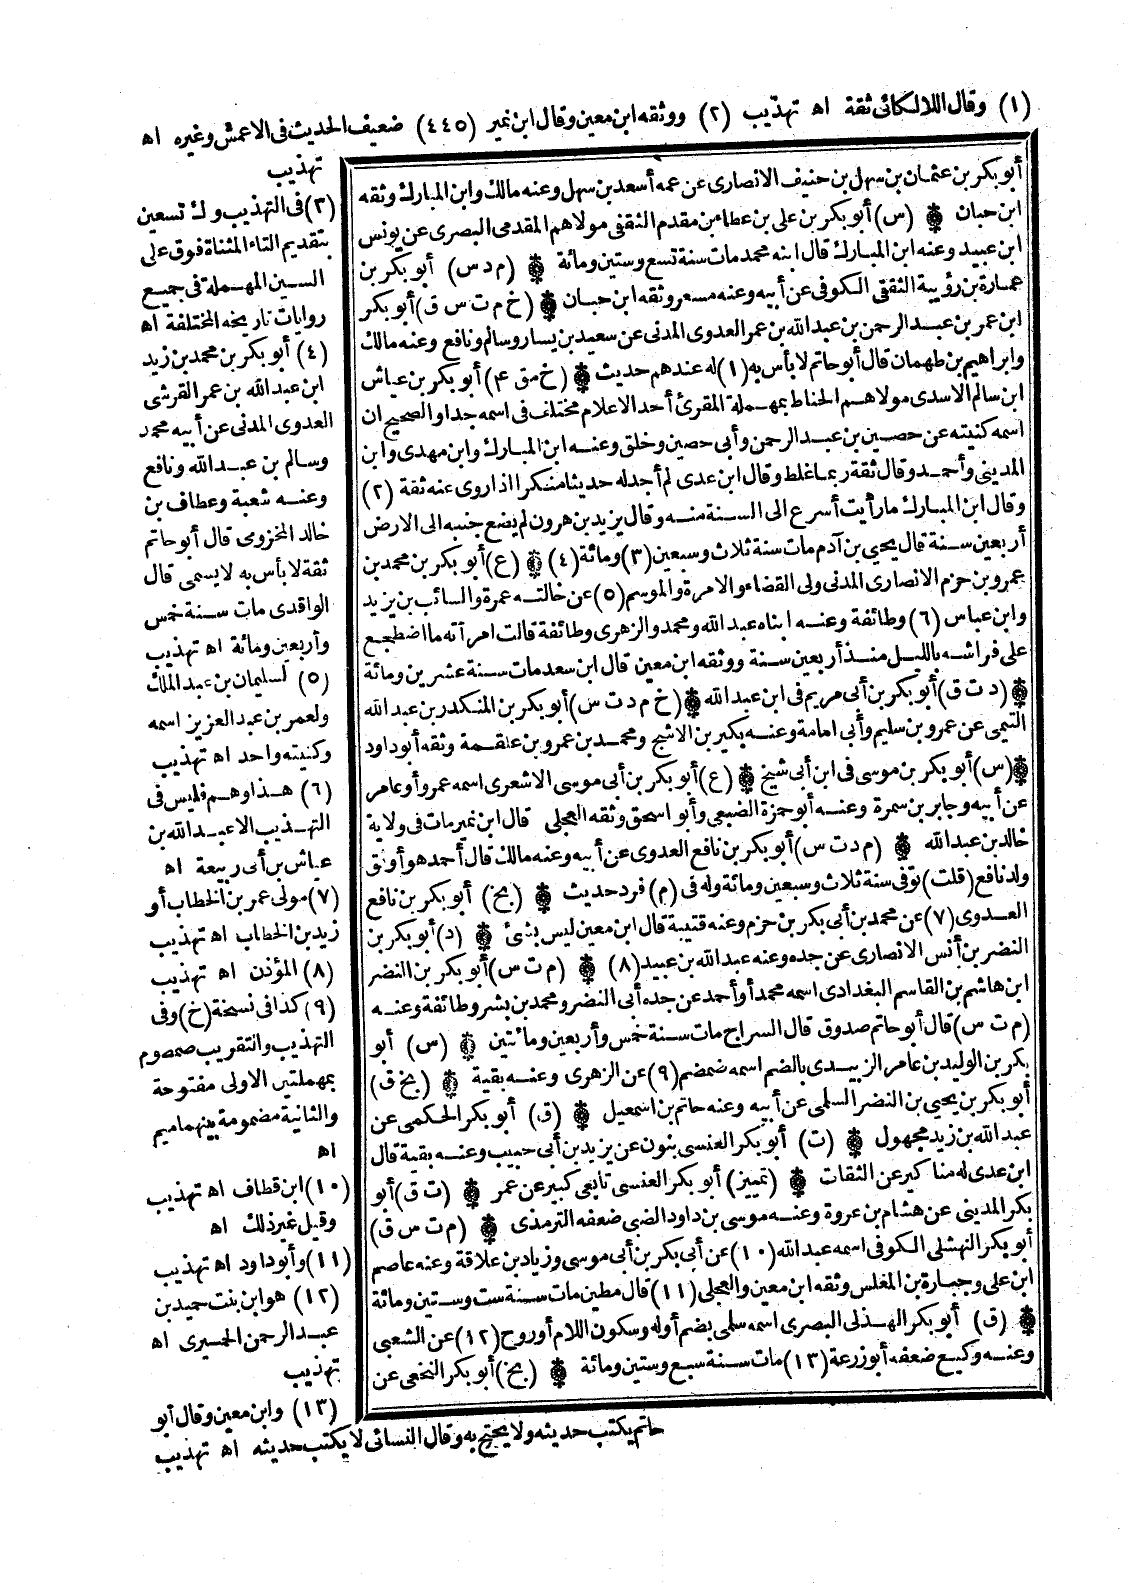 (١) وقال اللالكائى ثقة اه تهذيب (٢) ووثقه ابن معين وقال ابن نمير (٤٤٥) ضعيف الحديث فى الاعمش وغيره اه
تهذيب
أبو بكر بن عثمان بن سهل بن حنيف الانصارى عن عمه أسعد بن سهل وعنه مالك وابن المبارك وثقه
ابن حبان (س) أبو بكر بن على بن عطاء بن مقدم الثقفى مولاهم المقدمى البصرى عن يونس
ابن عبيد وعنه ابن المبارك قال ابنه محمد مات سنة تسع وستين ومائة (م د س) أبو بكر بن
عمارة بن رؤيبة الثقفى الكوفى عن أبيه وعنه مسعر وثقه ابن حبان (خ م ت س ق) أبو بكر
ابن عمر بن عبد الرحمن بن عبد الله بن عمر العدوى المدنى عن سعيد بن يسار وسالم ونافع وعنه مالك
وابراهيم بن طهمان قال أبو حاتم لا بأس به (١) له عندهم حديث (خ مق ٤) أبو بكر بن عياش
ابن سالم الاسدى مولاهم الحناط بمهملة المقرئ أحد الاعلام مختلف فى اسمه جدا والصحيح ان
اسمه كنيته عن حصين بن عبد الرحمن وأبى حصين وخلق وعنه ابن المبارك وابن مهدى وابن
المدينى وأحمد وقال ثقة ربما غلط وقال ابن عدى لم أجد له حديثا منكرا اذا روى عنه ثقة (٢)
وقال ابن المبارك ما رأيت أسرع الى السنة منه وقال يزيد بن هرون لم يضع جنبه الى الارض
أربعين سنة قال يحيى بن آدم مات سنة ثلاث وسبعين (٣) ومائة (٤) (ع) أبو بكر بن محمد بن
عمرو بن حزم الانصارى المدنى ولى القضاء والامرة والموسم (٥) عن خالته عمرة والسائب بن يزيد
وابن عباس (٦) وطائفة وعنه ابناه عبد الله ومحمد والزهرى وطائفة قالت امرأته ما اضطجع
على فراشه بالليل منذ أربعين سنة ووثقه ابن معين قال ابن سعد مات سنة عشرين ومائة
(د ت ق) أبو بكر بن أبى مريم فى ابن عبد الله (خ م د ت س) أبو بكر بن المنكدر بن عبد الله
التيمى عن عمرو بن سليم وأبى امامة وعنه بكير بن الاشج ومحمد بن عمرو بن علقمة وثقه أبو داود
(س) أبو بكر بن موسى فى ابن أبى شيخ (ع) أبو بكر بن أبى موسى الاشعرى اسمه عمرو أو عامر
عن أبيه وجابر بن سمرة وعنه أبو حمزة الضبعى وأبو اسحق وثقه العجلى قال ابن نمير مات فى ولاية
خالد بن عبد الله (م د ت س) أبو بكر بن نافع العدوى عن أبيه وعنه مالك قال أحمد هو أوثق
ولد نافع (قلت) توفى سنة ثلاث وسبعين ومائة وله فى (م) فرد حديث (بخ) أبو بكر بن نافع
العدوى (٧) عن محمد بن أبى بكر بن حزم وعنه قتيبة قال ابن معين ليس بشئ (د) أبو بكر بن
النضر بن أنس الانصارى عن جده وعنه عبد الله بن عبيد (٨) (م ت س) أبو بكر بن النضر
ابن هاشم بن القاسم البغدادى اسمه محمد أو أحمد عن جده أبى النضر ومحمد بن بشر وطائفة وعنه
(م ت س) قال أبو حاتم صدوق قال السراج مات سنة خمس وأربعين ومائتين (س) أبو
بكر بن الوليد بن عامر الزبيدى بالضم اسمه ضمضم (٩) عن الزهرى وعنه بقية (بخ ق)
أبو بكر بن يحيى بن النضر السلمى عن أبيه وعنه حاتم بن اسمعيل (ق) أبو بكر الحكمى عن
عبد الله بن زيد مجهول (ت) أبو بكر العنسى بنون عن يزيد بن أبى حبيب وعنه بقية قال
ابن عدى له مناكير عن الثقات (تمييز) أبو بكر العنسى تابعى كبير عن عمر (ت ق) أبو
بكر المدينى عن هشام بن عروة وعنه موسى بن داود الضبى ضعفه الترمذى (م ت س ق)
أبو بكر النهشلى الكوفى اسمه عبد الله (١٠) عن أبى بكر بن أبى موسى وزياد بن علاقة وعنه عاصم
ابن على وجبارة بن المغلس وثقه ابن معين والعجلى (١١) قال مطين مات سنة ست وستين ومائة
(ق) أبو بكر الهذلى البصرى اسمه سلمى بضم أوله وسكون اللام أو روح (١٢) عن الشعبى
وعنه وكيع ضعفه أبو زرعة (١٣) مات سنة سبع وستين ومائة (بخ) أبو بكر النخعى عن
(٣) فى التهذيب ولد تسعين
بتقديم التاء المثناة فوق على
السين المهملة فى جميع
روايات تاريخه المختلفة اه
(٤) أبو بكر بن محمد بن زيد
ابن عبد الله بن عمر القرشى
العدوى المدنى عن أبيه محمد
وسالم بن عبد الله ونافع
وعنه شعبة وعطاف بن
خالد المخزومى قال أبو حاتم
ثقة لا بأس به لا يسمى قال
الواقدى مات سنة خمس
وأربعين ومائة اه تهذيب
(٥) لسليمان بن عبد الملك
ولعمر بن عبد العزيز اسمه
وكنيته واحد اه تهذيب
(٦) هذا وهم فليس فى
التهذيب الا عبد الله بن
عياش بن أبى ربيعة اه
(٧) مولى عمر بن الخطاب أو
زيد بن الخطاب اه تهذيب
(٨) المؤذن اه تهذيب
(٩) كذا فى نسخة (خ) وفى
التهذيب والتقريب صمصوم
بمهملتين الاولى مفتوحة
والثانية مضمومة بينهما ميم
اه
(١٠) ابن قطاف اه تهذيب
وقيل غير ذلك اه
(١١) وأبو داود اه تهذيب
(١٢) هو ابن بنت حميد بن
عبد الرحمن الحميرى اه
تهذيب
(١٣) وابن معين وقال أبو
حاتم يكتب حديثه ولا يحتج به وقال النسائى لا يكتب حديثه اه تهذيب